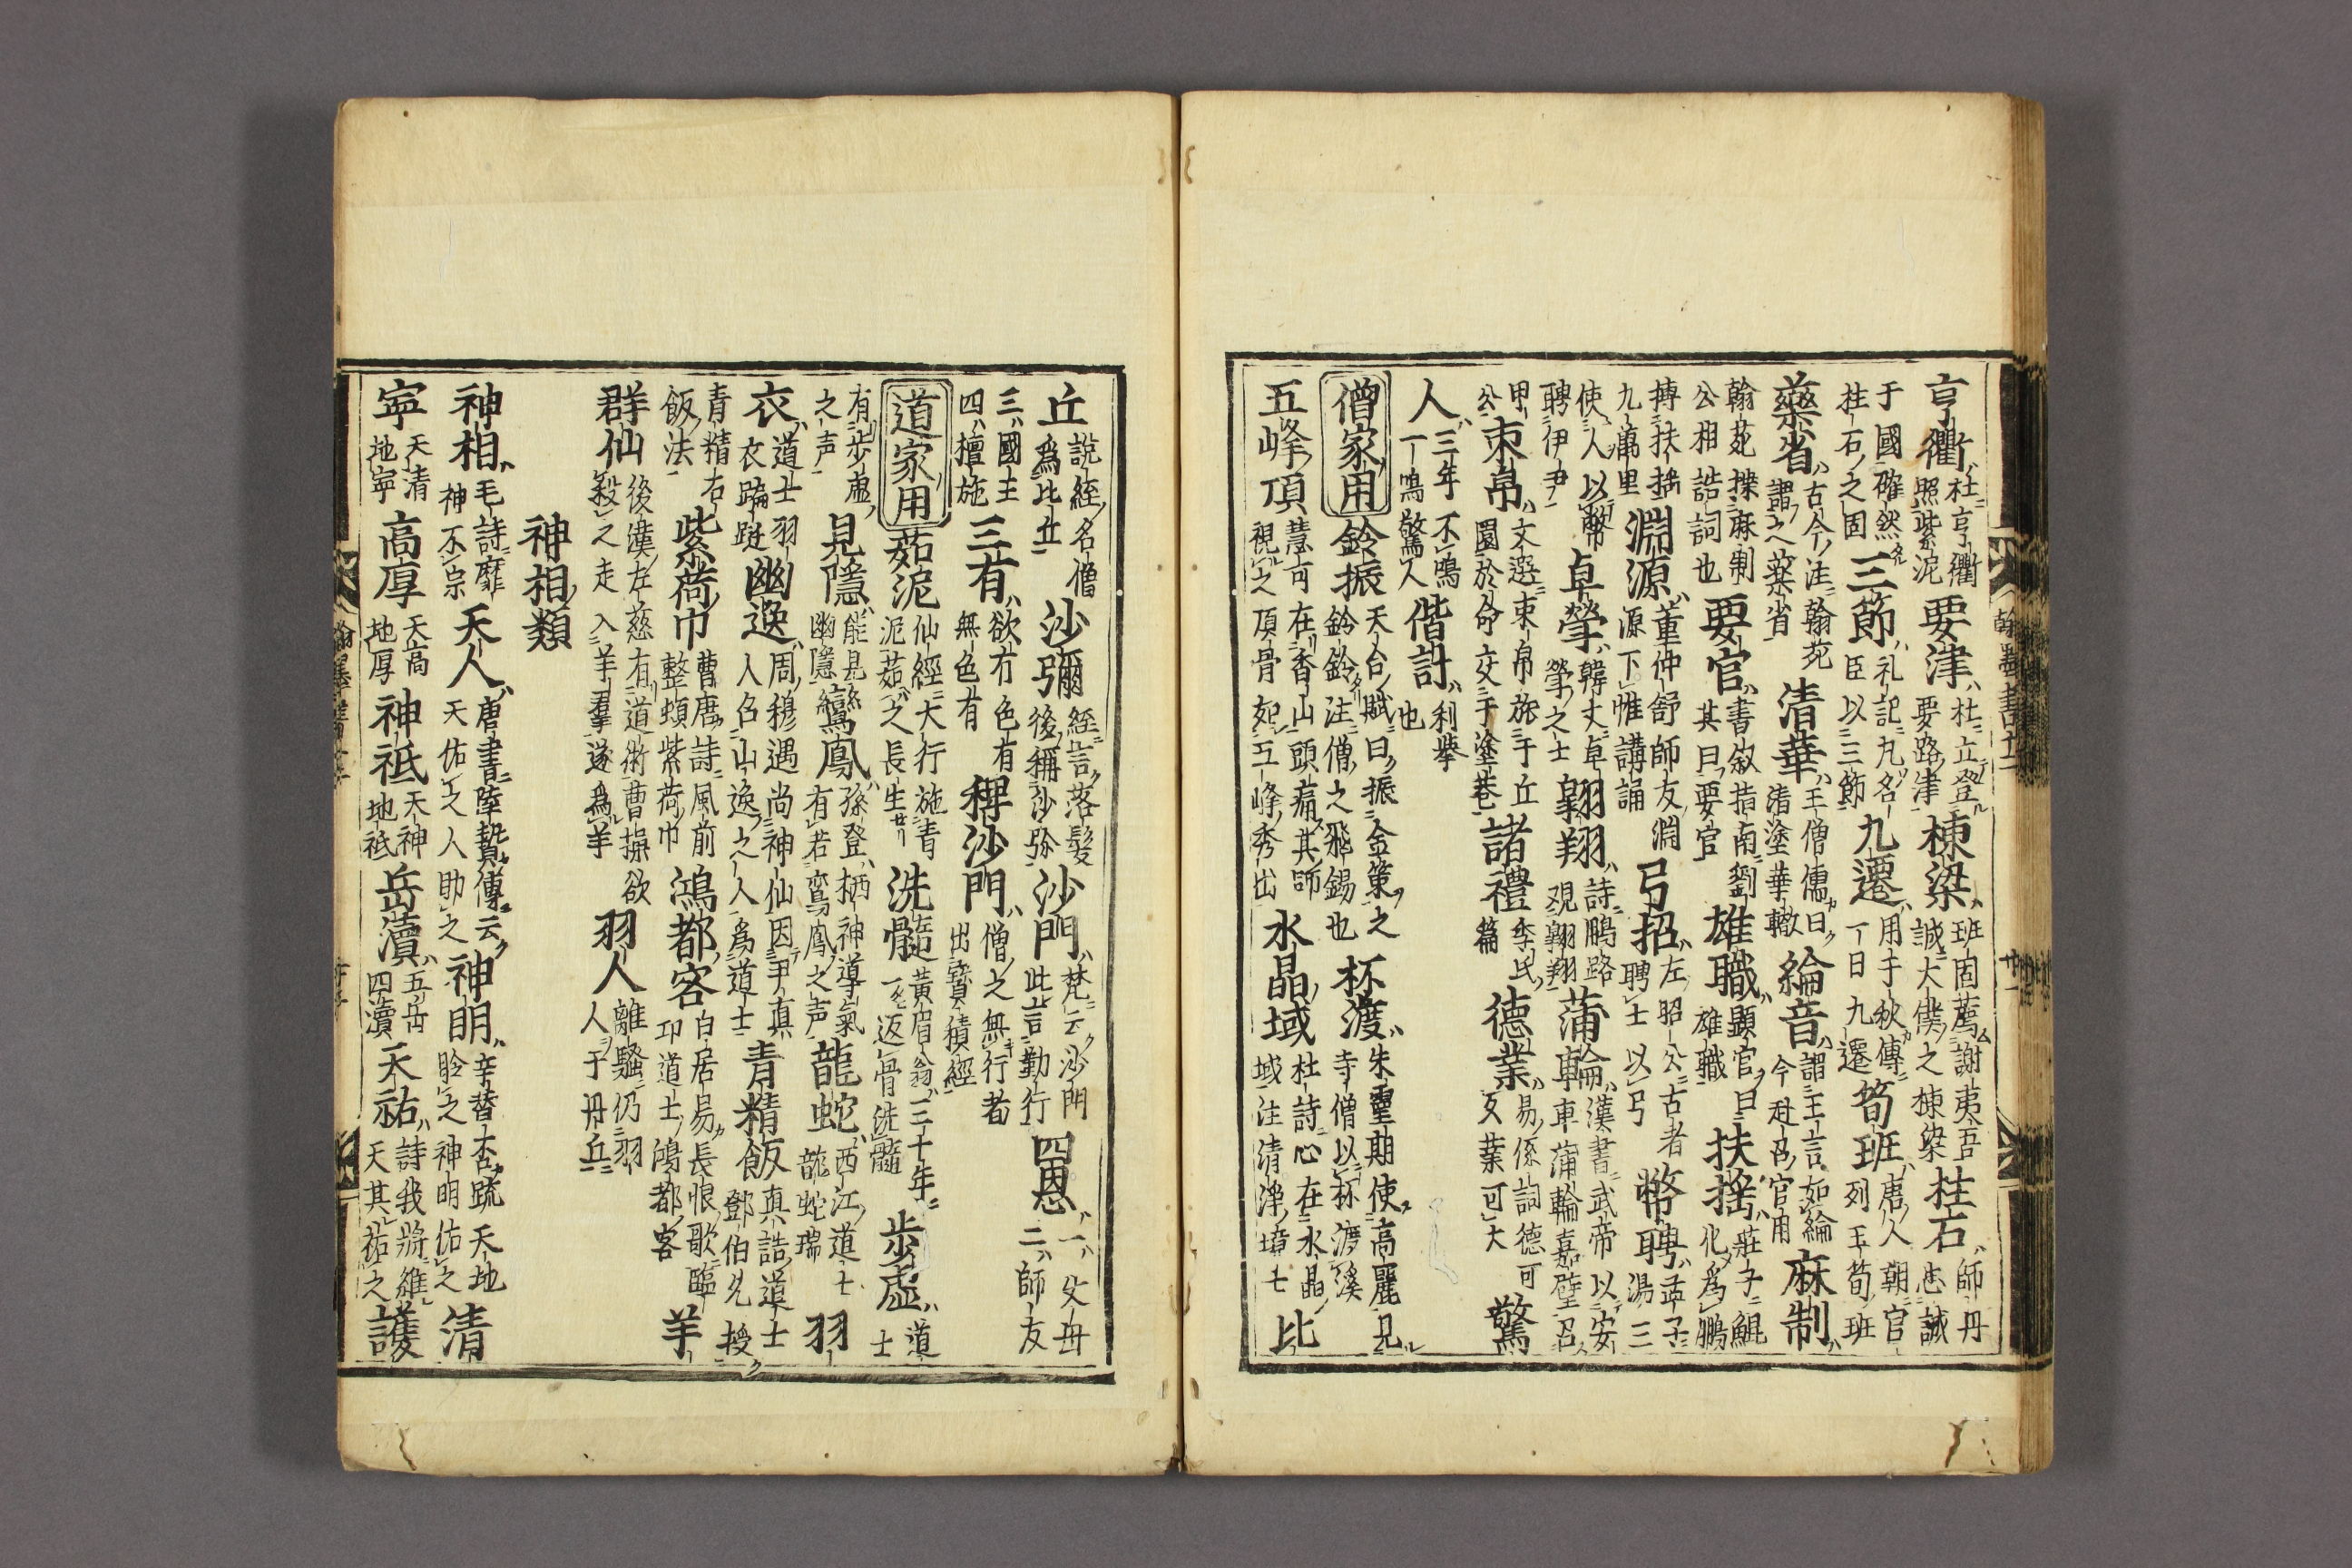 亨衢杜亨衢照紫泥要津杜立登要路津棟梁班固薦謝夷吾誠大僕之棟梁柱石師丹忠誠
于國確然柱石之固三節礼記九名臣以三節九遷用于秋傳一日九遷筍班唐人朝官列玉筍班
藥省古今注翰苑謂之藥省清華王僧儒曰清塗華轍綸音謂王言如綸今赴召官用麻制
翰苑操麻制公相誥詞也要官書叙指南劉其曰要官雄職顕官曰雄職扶揺莊子鯤化為鵬
搏扶揺九萬里淵源董仲舒師友淵源下帷講誦弓招左昭公古者聘士以弓幣聘孟子湯三
使人以幣聘伊尹卓犖韓丈卓犖之士翺翔詩鵬路覌翺翔蒲輪漢書武帝以安車蒲輪嘉璧召
申公束帛文选束帛旅于丘園於命交于塗巷諸禮季氏篇德業易係詞德可久業可大驚
人三年不鳴一鳴驚人偕計利挙也
僧家用鈴振天台賦曰振金策之鈴鈴注僧之飛錫也杯渡朱霊期使高麗見寺僧以杯渡溪
五峰頂慧可在香山頭痛其師視之頂骨如五峰秀出水晶域杜詩心在水晶域注清浄境七比
丘說経名僧為比丘沙彌経言落髪後稱沙弥沙門梵云沙門此言勤行四恩一父母二師友
三國主四檀施三有欲有色有無色有稗沙門僧之無行者出寳積經
道家用茹泥仙經大行施青泥茹之長生洗髓黃眉翁三千年一返骨洗髓步虚道士
有步虚之声見隱能見幽隱鸞鳳孫登栖神導氣有若鸞鳳之声龍蛇西江道士龍蛇瑞羽
衣道士羽衣踰跹幽逸周穆遇尚神仙因尹真人名山逸之人為道士青精飯真誥道士鄧伯先授
青精右飯法紫荷巾曹唐詩風前整頓紫荷巾鴻都客白居易長恨歌臨卭道士鴻都客羊
群仙後漢左慈有道術曹操欲殺之走入羊羣遂為羊羽人離騷仍羽人于丹丘
神相類
神相毛詩靡神不宗天人唐書陸贄傳云天佑之人助之神明辛替否疏天地聆之神明佑之清
寧天清地寧高厚天高地厚神祇天神地祇岳瀆五岳四瀆天祐詩我將維天其祐之護